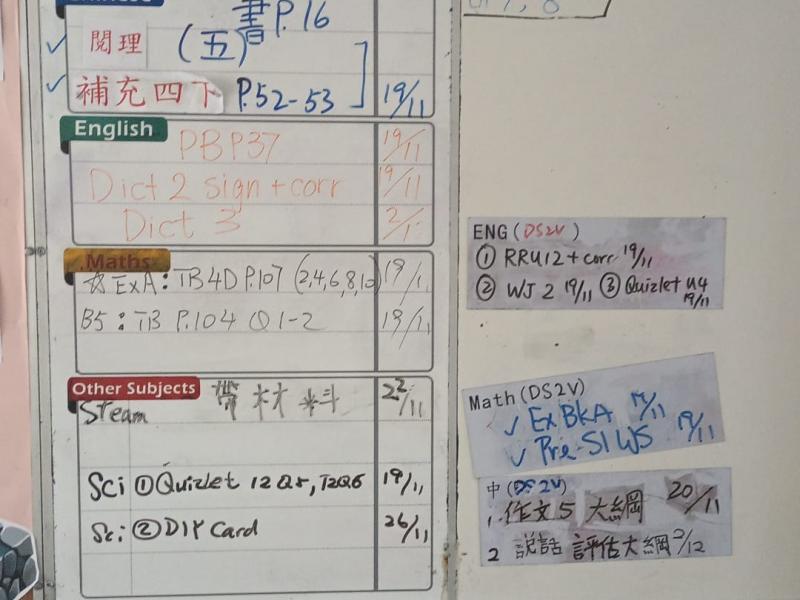 Chinese
書 P.16
閱理 (五)
補充四下 P.52-53 19/11
English
PBP37 19/11
Dict 2 sign + corr 19/11
Dict 3
Maths
☆ ExA: TB4D P.107 (2,4,6,8,10) 19/11
B5: TB P.104 Q1-2 19/11
Other Subjects
Steam 帶材料 22/11
Sci ① Quizlet 12Q5, T2Q6 19/11
Sci ② DIY Card 26/11
ENG (DS2V)
① RRU12 + corr 19/11
② WJ 2 19/11 ③ Quizlet U4
19/11
Math (DS2V)
✓ Ex BkA 19/11
✓ Pre-S1 WS 19/11
中 (DS2V)
1. 作文5 大綱 20/11
2 説話評估大綱 2/12